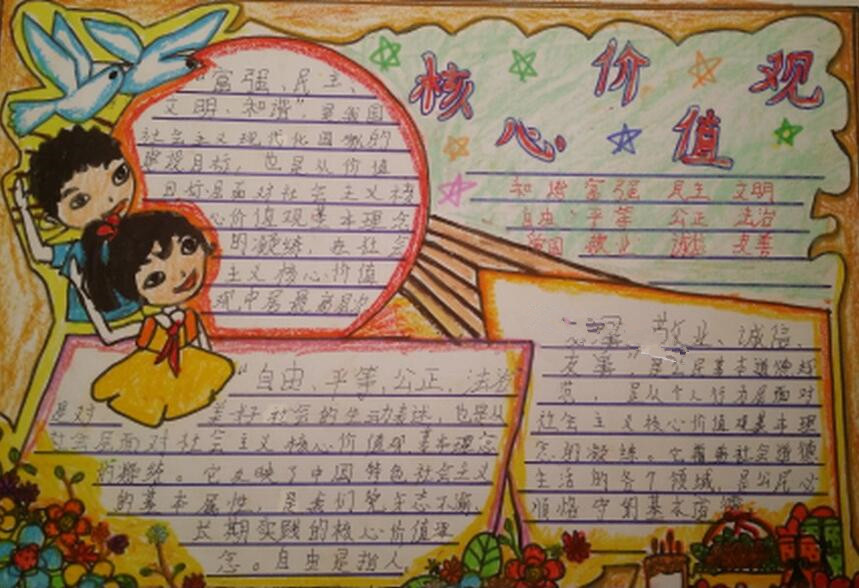 核心价值观
和谐 富强 民主 文明
自由 平等 公正 法治
爱国 敬业 诚信 友善
"富强、民主、
文明、和谐",是我国
社会主义现代化国家的
建设目标,也是从价值
目标层面对社会主义核
心价值观基本理念
的凝练,在社会
主义核心价值
观中居最高层次
"自由、平等、公正、法治
是对 美好社会的生动表述,也是从
社会层面对社会主义核心价值观基本理念
的凝练。它反映了中国特色社会主义
的基本属性,是我们党矢志不渝、
长期实践的核心价值理
念。自由是指人
敬业、诚信、
友善"是公民基本道德规
范,是从个人行为层面对
社会主义核心价值观基本理
念的凝练。它覆盖社会道德
生活的各个领域,是公民必
须恪守的基本道德